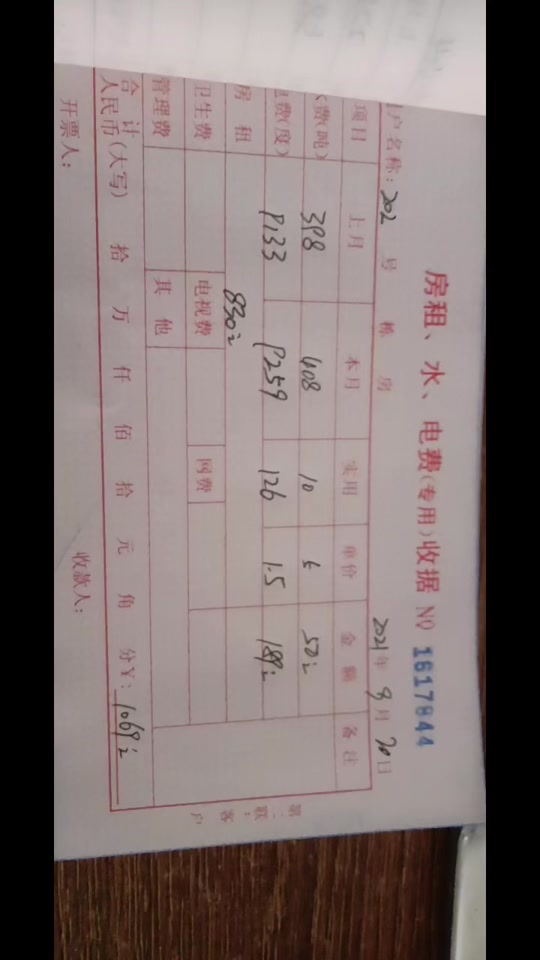 房租、水、电费(专用)收据 NO 1617844
户名称: 202 号 栋 房 2021年 9月 20日
项目 上月 本月 实用 单价 金额 备注
费(吨) 398 408 10 50
费(度) P133 P259 126 1.5 189
房租 830
卫生费 电视费 网费
管理费 其他
合计人民币(大写) 拾 万 仟 佰 拾 元 角 分¥: 1069
开票人: 收款人:
第二联:客户